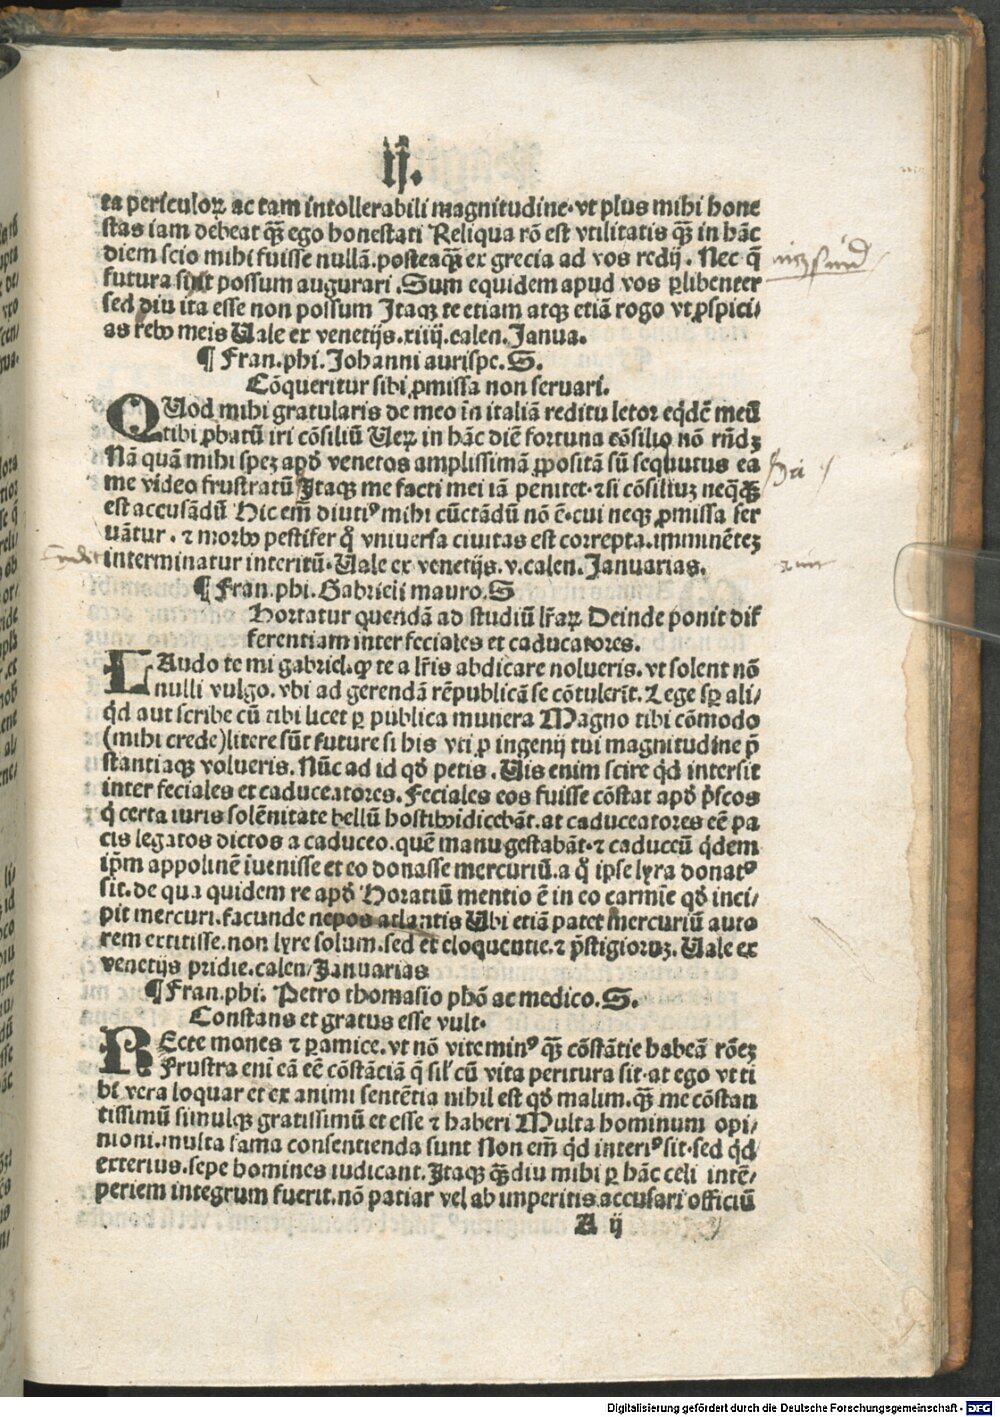 ij.
ta periculoꝝ ac tam intollerabili magnitudine·vt plus mihi hone
stas iam debeat qꝫ̃ ego honestati Reliqua rõ est vtilitatis qꝫ̃ in hãc
diem scio mihi fuisse nullã.posteaqꝫ̃ ex grecia ad vos redij. Nec q̃
futura sint possum augurari.Sum equidem apud vos ꝑlibenter
sed diu ita esse non possum Itaqꝫ te etiam atqꝫ etiã rogo vt ꝓspici/
as rebꝰ meis Uale ex venetijs.xiiij.calen.Janua.
¶ Fran.phi.Johanni aurispe.S.
Cõqueritur sibi ꝓmissa non seruari.
QUod mihi gratularis de meo in italiã reditu letor eq̇dẽ meũ
tibi ꝓbatũ iri cõsiliũ Ueꝝ in hãc diẽ fortuna cõsilio nõ rñdꝫ
Nã quãm mihi speꝫ apđ venetos amplissimã ꝓpositã sũ sequutus ea
me video frustratũ Itaqꝫ me facti mei iã penitet·⁊si cõsiliuꝫ neq̇qꝫ̃
est accusãdũ Hic em̃ diutiꝰ mihi cũctãdũ nõ ẽ·cui neqꝫ ꝓmissa ser
uãtur.⁊ morbo pestifer q̊ vniuersa ciuitas est correpta.imminẽteꝫ
interminatur interitũ·Uale ex venetijs.v.calen.Januarias.
¶ Fran.phi.Gabrieli mauro.S
Hortatur quendã ad studiũ lr̃aꝝ Deinde ponit dif
ferentiam inter feciales et caducatores.
LAudo te mi gabriel.ꝙ te a lr̃is abdicare nolueris.vt solent nõ
nulli vulgo.vbi ad gerendã rẽpublicã se cõtulerĩt.Lege sꝑ ali/
q̇d aut scribe cũ tibi licet ꝑ publica munera Magno tibi cõmodo
(mihi crede)litere sũt future si his vti ꝓ ingenij tui magnitudine p̃
stantiaqꝫ volueris.Nũc ad id qđ petis.Uis enim scire q̇d intersit
inter feciales et caduceatores.Feciales eos fuisse cõstat apđ p̃scos
q̇ certa iuris solẽnitate bellũ hostibꝰ idicebãt.at caduceatores eẽ pa
cis legatos dictos a caduceo.quẽ manu gestabãt·⁊ caduceũ q̇dem
ip̃m appolinẽ iuenisse et eo donasse mercuriũ.a q̊ ipse lyra donatꝰ
sit.de qua quidem re apđ Horatiũ mentio ẽ in eo carmĩe qđ inci/
pit mercuri.facunde nepos atlantis Ubi etiã patet mercuriũ auto
rem extitisse.non lyre solum.sed et eloquentie.⁊ p̃stigioruꝫ.Uale ex
venetijs pridie.calen.Januarias
¶ Fran.phi. Petro thomasio phõ ac medico.S.
Constans et gratus esse vult·
REcte mones ⁊ ꝑamice.vt nõ vite minꝰ qꝫ̃ cõstãtie habeã rõeꝫ
Frustra eni eã eẽ cõstãciã q̃ sil' cũ vita peritura sit·at ego vt ti
bi vera loquar et ex animi sentẽtia nihil est qđ malim.qꝫ̃ me cõstan
tissimũ simulqꝫ gratissimũ et esse ⁊ haberi Multa hominum opi/
nioni.multa fama consentienda sunt Non em̃ q̇d interiꝰ sit·sed q̇d
exterius.sepe homines iudicant.Itaqꝫ qꝫ̃diu mihi ꝑ hãc celi intẽ/
periem integrum fuerit.nõ patiar vel ab imperitis accusari officiũ
A ij
Digitalisierung gefördert durch die Deutsche Forschungsgemeinschaft - DFG